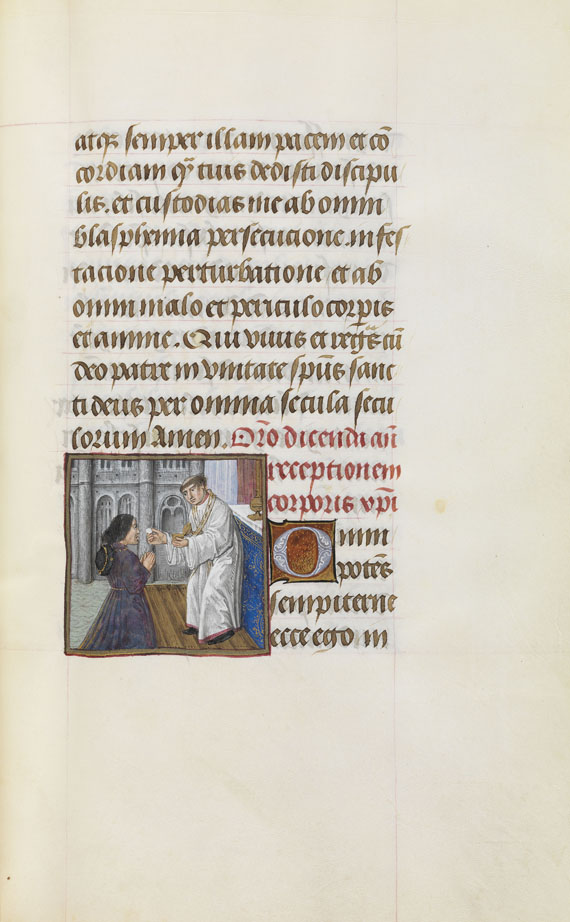 atqꝫ semper illam pacem et cō
cordiam qᷓ tuis dedisti discipu
lis. et custodias me ab omni
blasphemia persecucione. infes
tacione perturbatione et ab
omni malo et periculo corpis
et anime. Qui viuis et regꝰs cū
deo patre in vnitate spūs sanc
ti deus per omnia secula secu
lorum Amen. Orō dicendi añ
receptionem
corporis xpi
Omni
potēs
sempiterne
ecce ego in